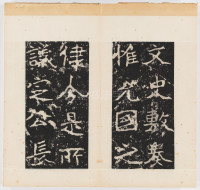 文史敷奏
惟允國之
律令是所
議定公長